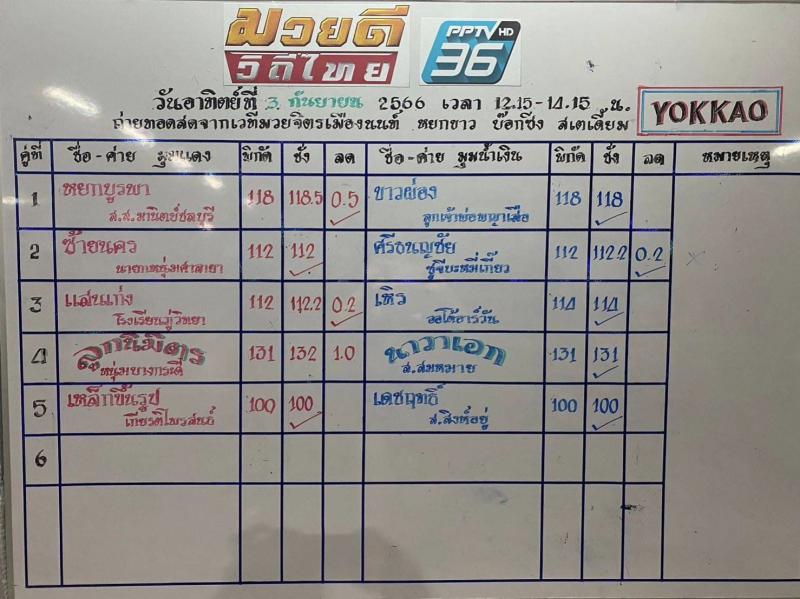 มวยดี
วิถีไทย
PPTV HD
36
วันอาทิตย์ที่ 3 กันยายน 2566 เวลา 12.15-14.15 น.
ถ่ายทอดสดจากเวทีมวยจิตรเมืองนนท์ หยกขาว บ๊อกซิ่ง สเตเดี้ยม
YOKKAO
คู่ที่ ชื่อ-ค่าย มุมแดง พิกัด ชั่ง ลด ชื่อ-ค่าย มุมน้ำเงิน พิกัด ชั่ง ลด หมายเหตุ
1 หยกบูรพา 118 118.5 0.5 ขาวผ่อง 118 118
ส.ส.มานิตย์ชลบุรี ลูกเจ้าพ่อพญาเสือ
2 ซ้ายนคร 112 112 ศรีธนญชัย 112 112.2 0.2
นายกหนุ่มศาลายา ชูจีบะหมี่เกี๊ยว
3 แสนเก่ง 112 112.2 0.2 เหิร 114 114
โรงเรียนภู่วิทยา ออโต้อาร์วัน
4 ลูกนิมิตร 131 132 1.0 นาวาเอก 131 131
หนุ่มบางกระดี่ ส.สมหมาย
5 เหล็กขึ้นรูป 100 100 เดชฤทธิ์ 100 100
เกียรติไพรสนธ์ ส.สิงห์อยู่
6